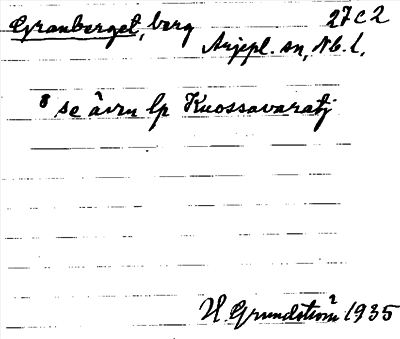 Granberget, berg 27C2
Arjepl. sn, Nb. l.
8 se ävn lp Kuossavaratj
H. Grundström 1935